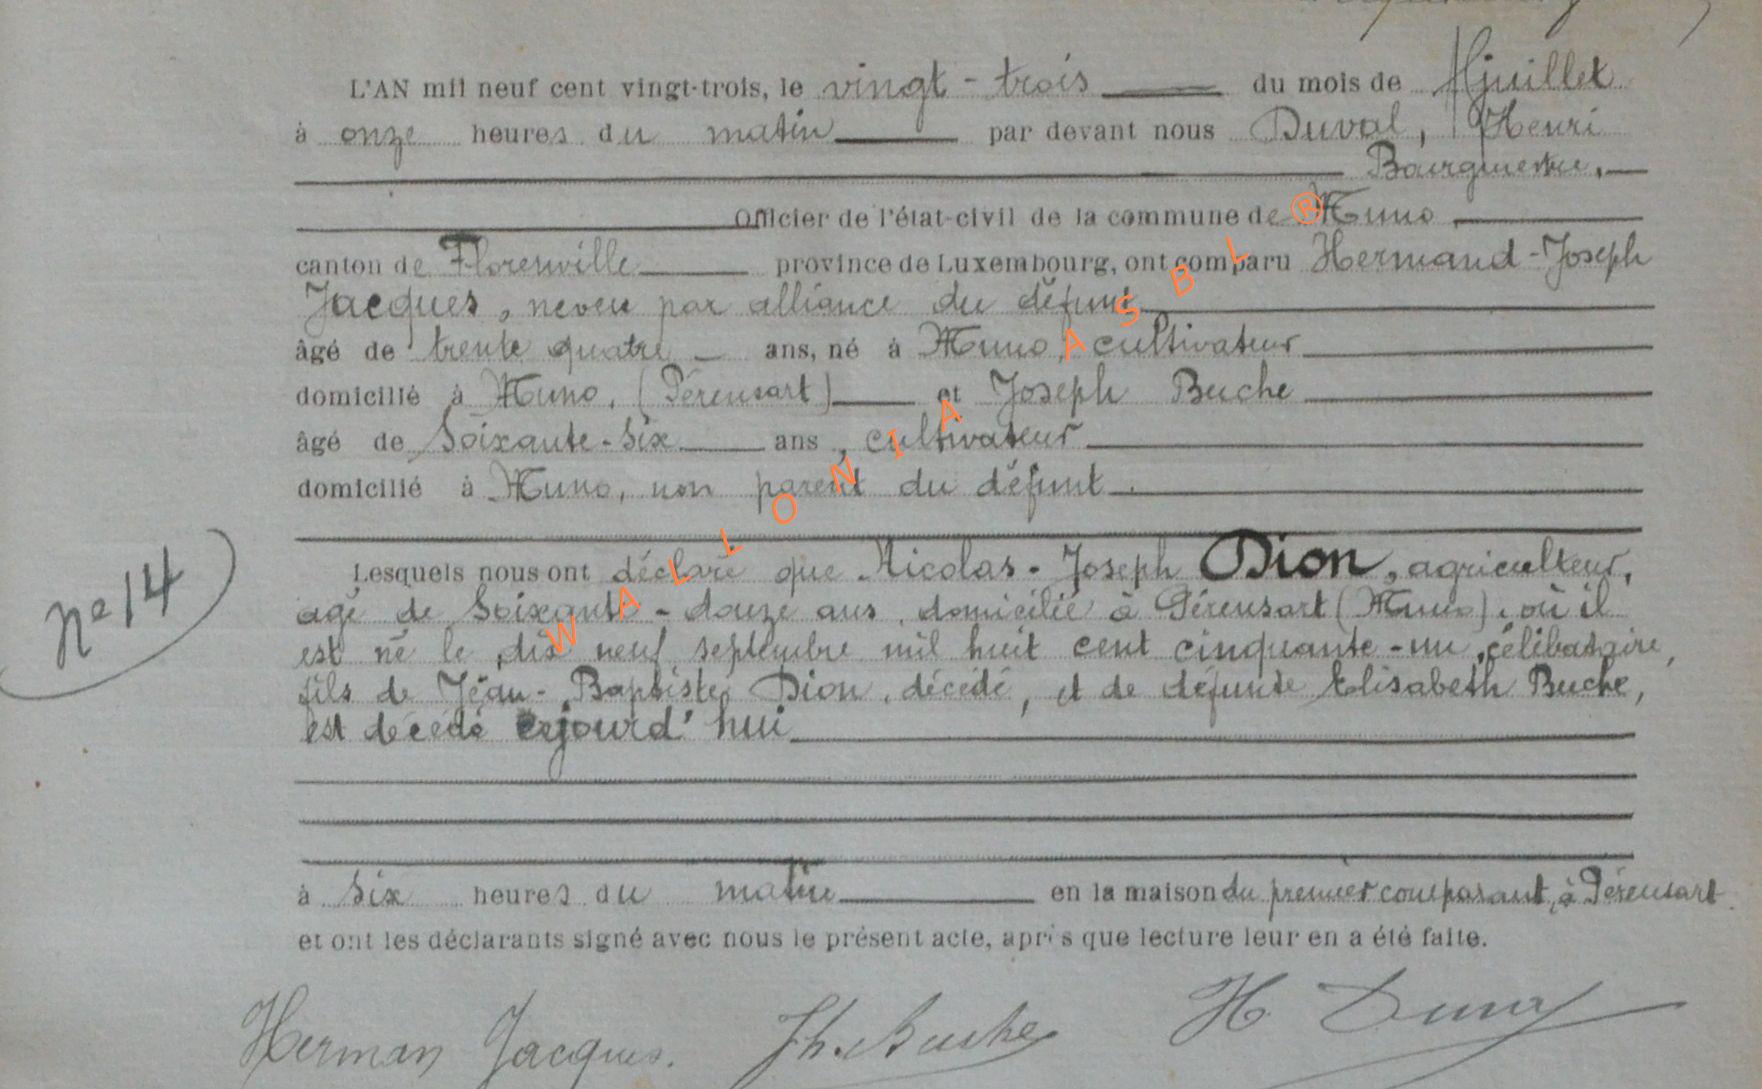 L'AN mil neuf cent vingt-trois, le vingt-trois du mois de juillet
à onze heures du matin par devant nous Duval, Henri
Bourgmestre,
Officier de l'état-civil de la commune de Muno
canton de Florenville province de Luxembourg, ont comparu Hermand-Joseph
Jacques, neveu par alliance du défunt
âgé de trente quatre ans, né à Muno, cultivateur
domicilié à Muno, (Pérensart) et Joseph Buche
âgé de Soixante-six ans, cultivateur
domicilié à Muno, non parent du défunt.
Lesquels nous ont déclaré que Nicolas-Joseph Dion, agriculteur,
agé de Soixante-douze ans, domicilié à Pérensart (Muno), où il
est né le dix neuf septembre mil huit cent cinquante-un, célibataire,
fils de Jean-Baptiste Dion, décédé, et de défunte Elisabeth Buche,
est décédé cejourd'hui
N° 14
à six heures du matin en la maison du premier comparant, à Pérensart
et ont les déclarants signé avec nous le présent acte, après que lecture leur en a été faite.
Herman Jacques. Jh. Buche H. Duval
WALLONIA ASBL ®